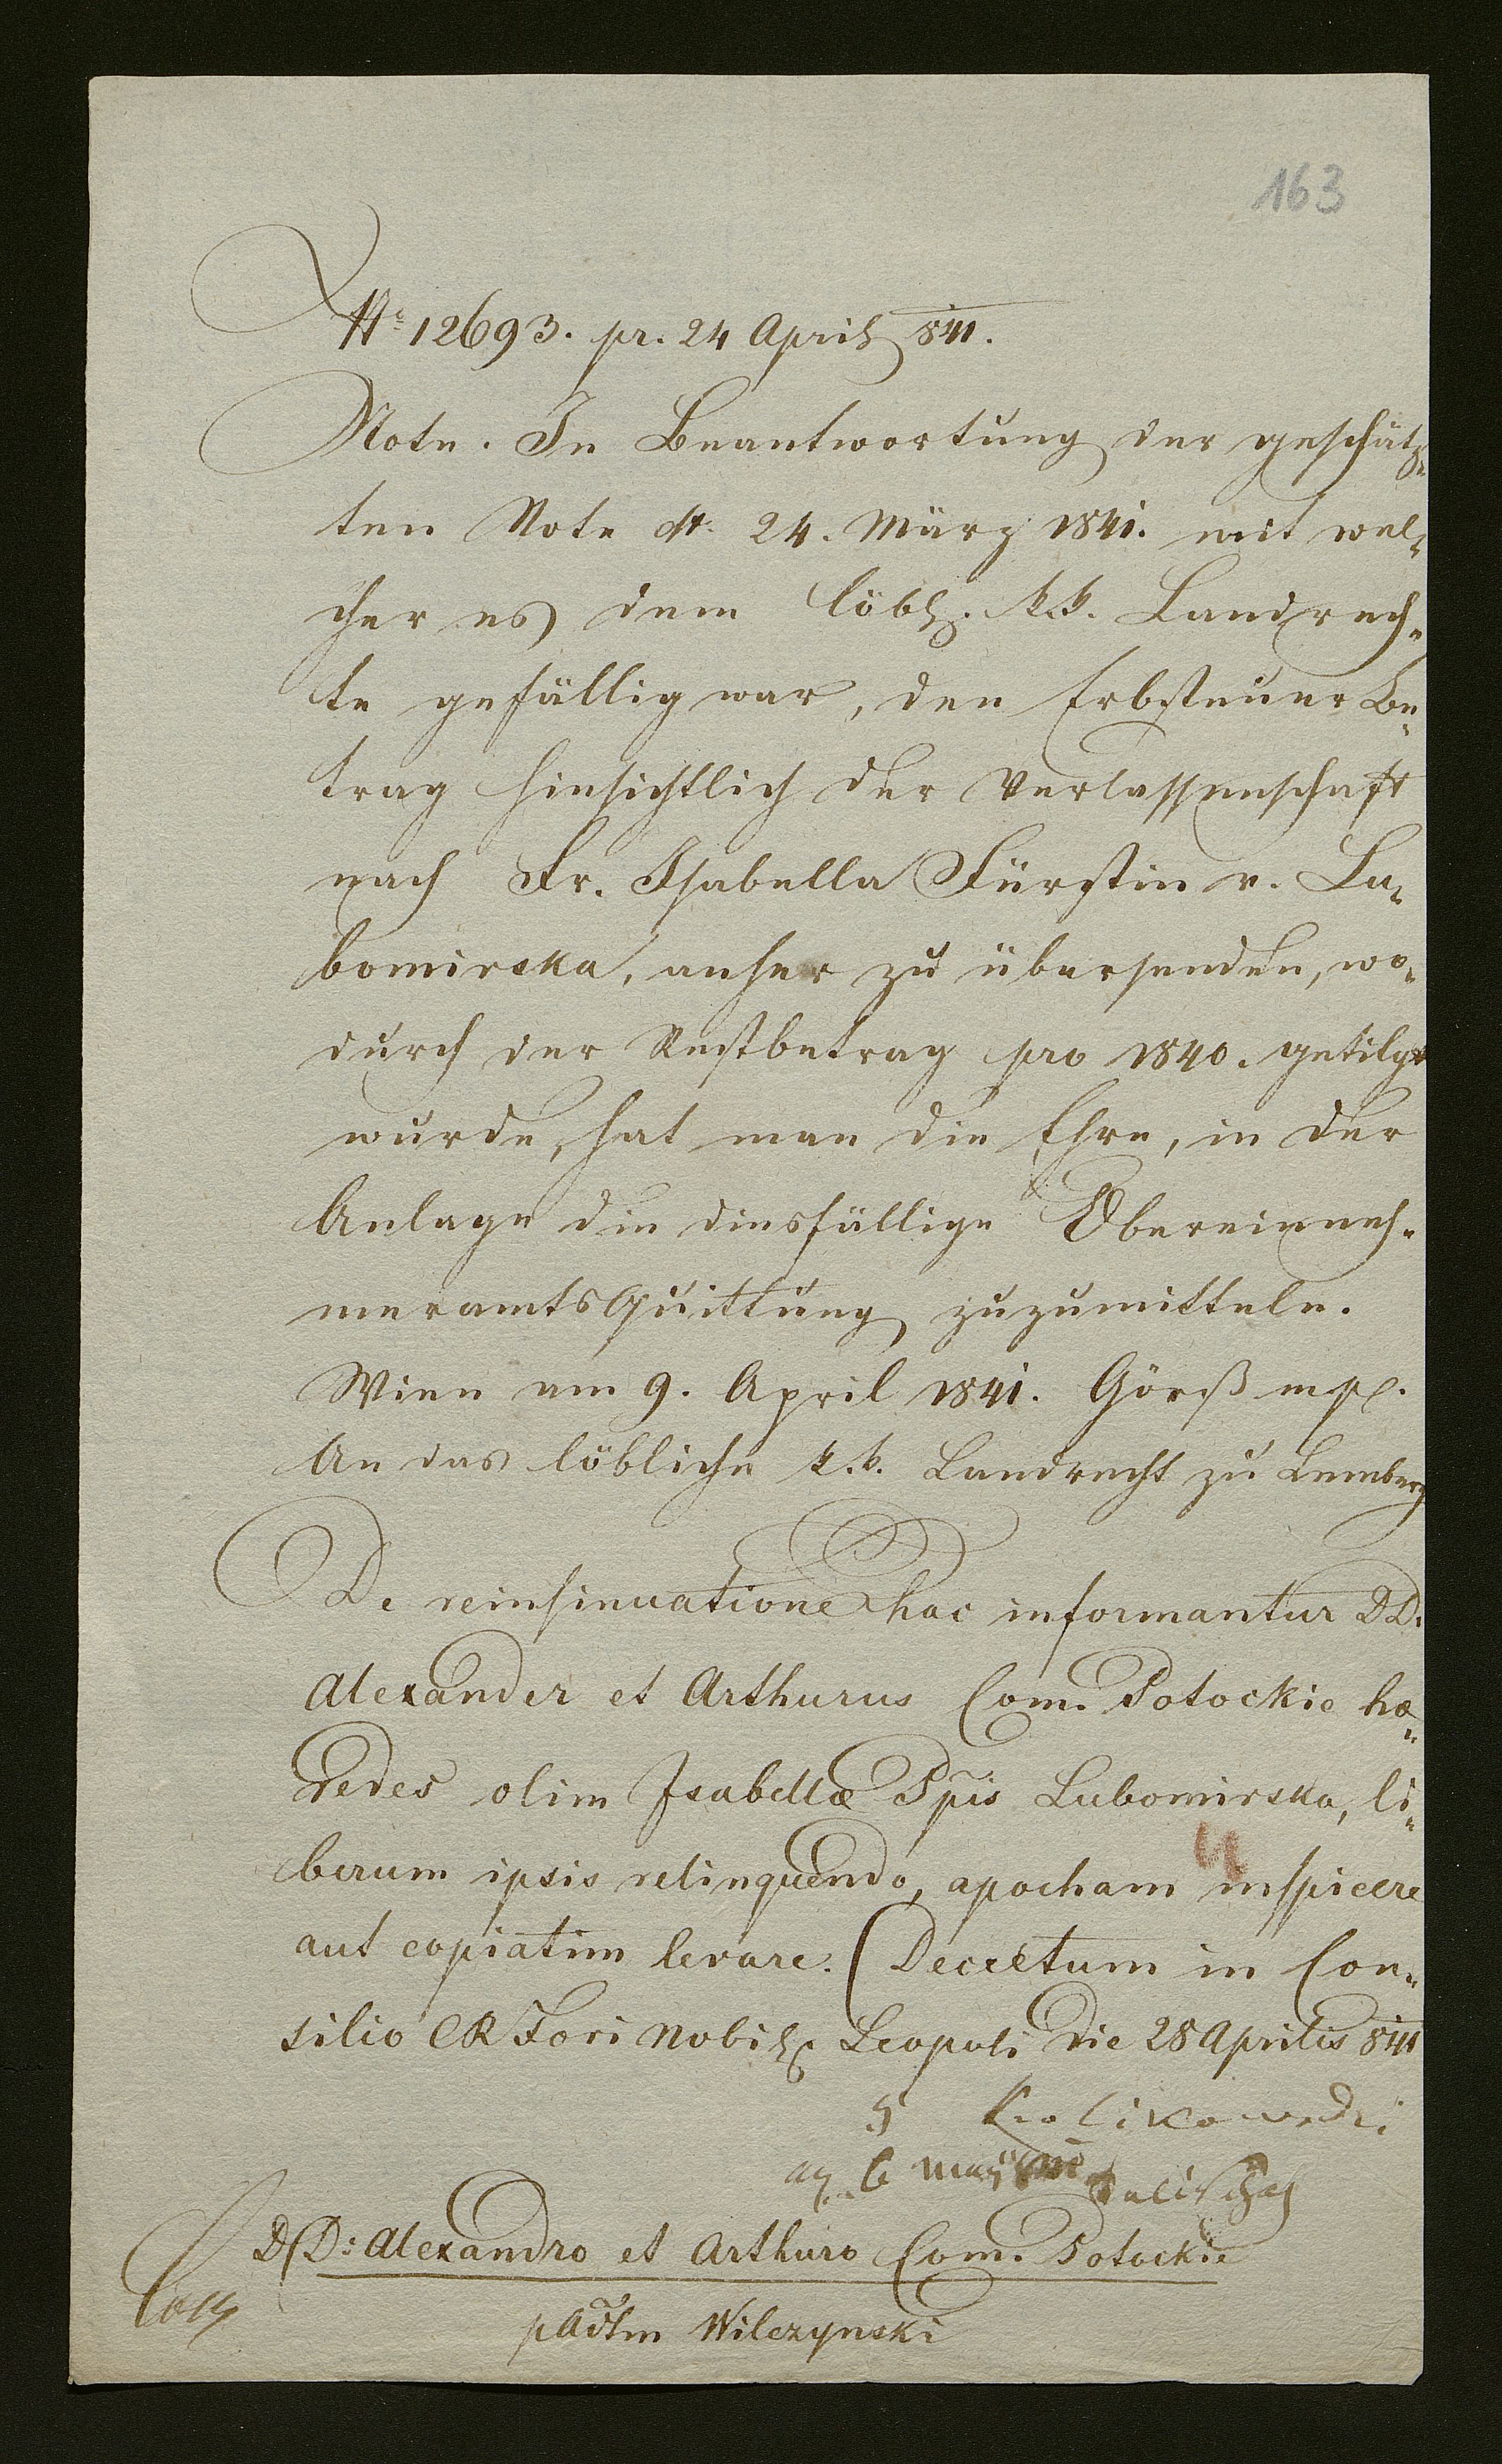 163
No 12693. pr. 24 April 841.
Note. In Beantwortung der geschätz-
ten Note dt. 24. März 1841. mit wel-
cher es dem löbl. k.k. Landrech-
te gefällig war, den Erbsteuer Be-
trag hinsichtlich der Verlassenschaft
nach Fr. Isabella Fürstin v. Lu-
bomirska, anher zu übersenden, wo-
durch der Restbetrag pro 1840. getilgt
wurde, hat man die Ehre, in der
Anlage die diesfällige Obereinneh-
meramtsquittung zuzumitteln.
Wien am 9. April 1841. Görß mp.
An das löbliche k.k. Landrecht zu Lemberg
De reinsinuatione hac informantur DD.
Alexander et Arthurus Com. Potockie hæ-
redes olim Isabellæ Ppis Lubomirska, li-
berum ipsis relinquendo, apocham inspicere
aut copiatim levare. Decretum in Con-
silio CR Fori Nobil. Leopoli die 28 Aprilis 841
Krolikowski
6
DD: Alexandro et Arthuro Com. Potockie
p Adtm Wilczynski